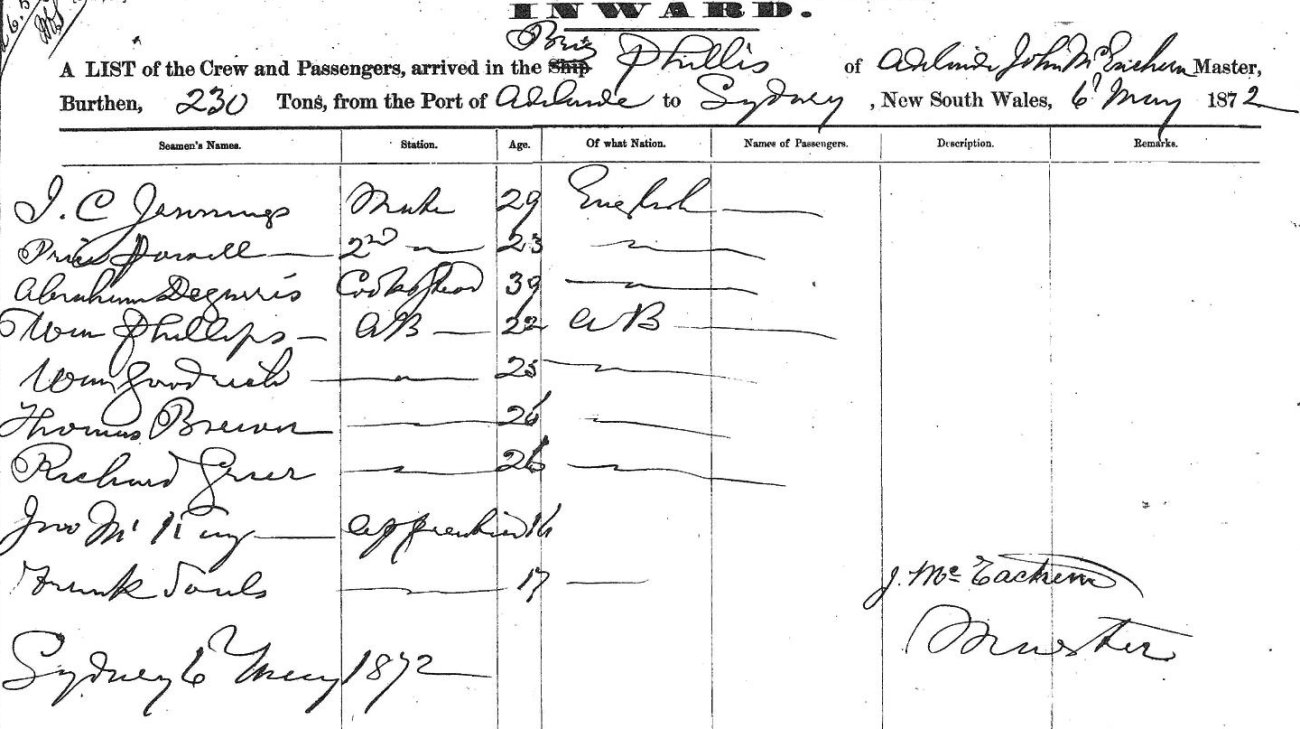 INWARD.
Brig
A LIST of the Crew and Passengers, arrived in the Ship Phillis of Adelaide John McEachern Master,
Burthen, 230 Tons, from the Port of Adelaide to Sydney, New South Wales, 6 May 1872
Seamen's Names. Station. Age. Of what Nation. Names of Passengers. Description. Remarks.
J. C Jennings Mate 29 English
23
Abraham 39
Wm Phillips AB 22 AB
Wm Goodrich 25
Thomas Brewn 26
Richard 26
Jno Apprentice 16
Frank 17
J. Mc Eachern
Master
Sydney 6 May 1872